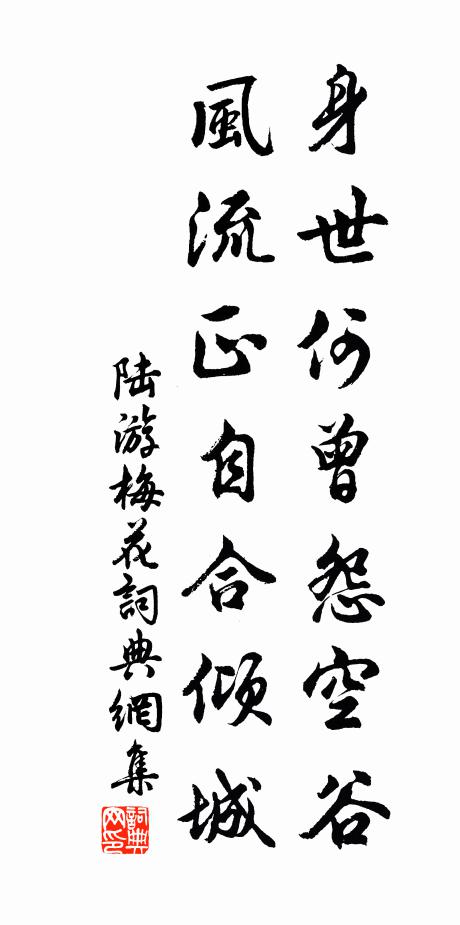 身世何曾怨空谷
風流正自合傾城
陸游梅花詞典網集
詞典網印